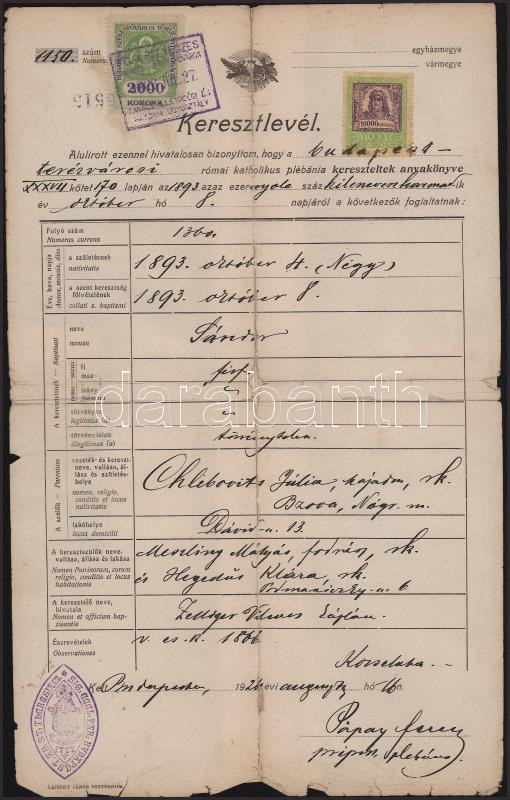 1150. szám
Numerus
egyházmegye
vármegye
2000
KORONA
27.
515
10000
Keresztlevél.
Alulirott ezennel hivatalosan bizonyitom, hogy a budapest-
terézvárosi római katholikus plébánia kereszteltek anyakönyve
XXXVII kötet 170 lapján az 1893 azaz ezernyolc száz kilencvenharmadik
év október hó 8. napjáról a következők foglaltatnak:
Folyó szám
Numerus currens
1360.
Éve, hava, napja
Annus, mensis, dies
a születésnek
nativitatis
1893. október 4. (Négy)
a szent keresztség
fölvételének
collati s. baptismi
1893. október 8.
A kereszteltnek — Baptisati
neve
nomen
Sándor
fi
mas
férfi
leány
femina
törvényes
legitimus (a)
törvénytelen
illegitimus (a)
törvénytelen
A szülők — Parentum
vezeték- és kereszt-
neve, vallása, ál-
lása és születés-
helye
nomen, religio,
conditio et locus
nativitatis
Chlebovits Júlia, hajadon, rk.
Bzova, Nógr. m.
lakóhelye
locus domicilii
Dávid-u. 13.
A keresztszülők neve,
vallása, állása és lakása
Nomen Patrinorum, eorum
religio, conditio et locus
habitationis
Meszliny Mátyás, fodrász, rk.
és Hegedűs Klára, rk.
Podmaniczky-u. 6
A keresztelő neve,
hivatala
Nomen et officium bap-
tisantis
Zelliger Vilmos káplán.
Észrevételek
Observationes
Kelt Budapesten, 1924 évi augusztus hó 16n.
Pápay Ferenc
prépost plébános
LAISZKY JÁNOS ESZTERGOM.
darabanth